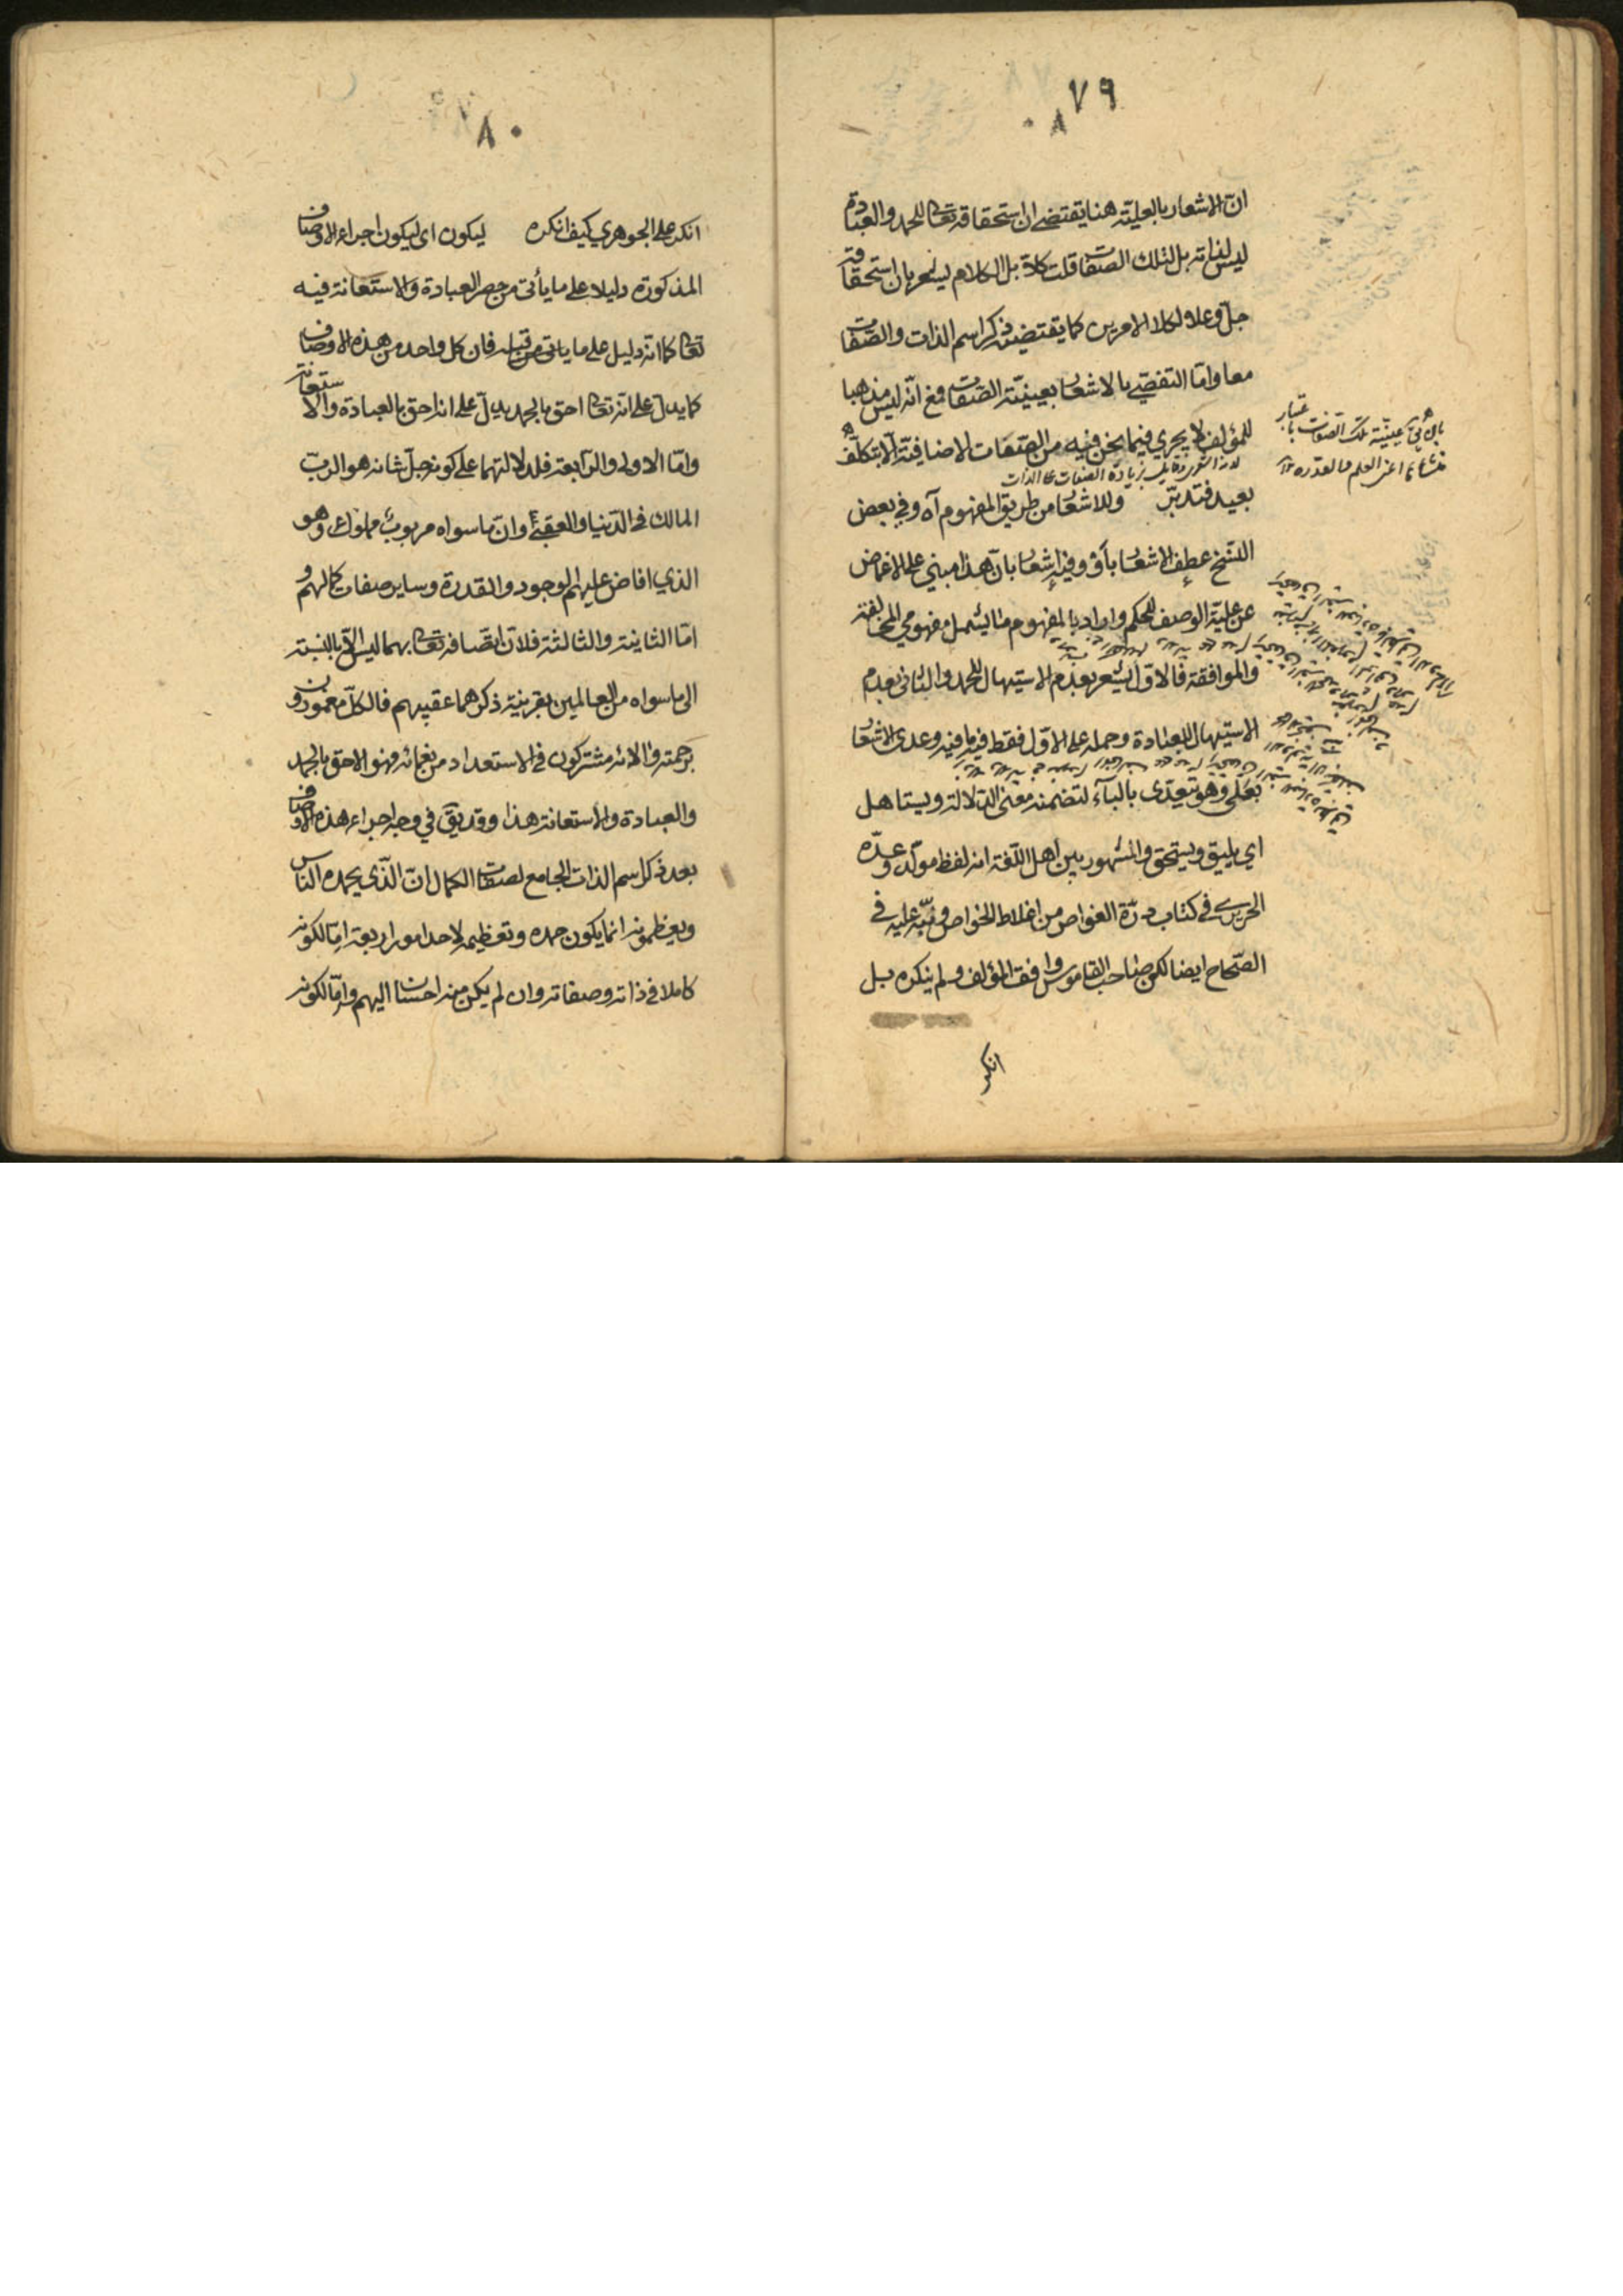 ٧٩
انّ الاشعار بالعليّة هنا يقتضي ان استحقاقه تعالى للحمد والعبادة
ليس لذاته بل لتلك الصفات قلت كلا بل الكلام ليشعر بان استحقاقه
جلّ وعلا لكلا الامرين كما يقتضيه ذكر اسم الذات والصفات
معا وامّا التفصّي بالاشعار بعينيّة الصفات فمع انّه ليس مذهبا
للمؤلف لا يجري فيما نحن فيه من الصفات الاضافيّة الّا بتكلّف
بعيد فتدبّر وللاشعار من طريق المفهوم آه وفي بعض
النسخ عطف الاشعار بأو وفيه إشعار بانّ هذا مبني على الاغماض
عن عليّة الوصف للحكم واراد بالمفهوم ما يشمل مفهومي المخالفة
والموافقة فالاوّل يشعر بعدم الاستيهال للحمد والثاني بعدم
الاستيهال للعبادة وحمله على الاوّل فقط فيه ما فيه وعدى الاشعار
بعلى وهو يتعدّى بالبآء لتضمنه معنى الدّلالة ويستاهل
اي يليق ويستحق والمشهور بين أهل اللّغة انه لفظ مولّد وعدّه
الحريري في كتاب درّة الغواص من اغلاط الخواص ونبّه عليه في
الصّحاح ايضا لكن صاحب القاموس وافق المؤلف ولم ينكره بل
انكر
٨٠
انكر على الجوهري كيف انكره ليكون اى ليكون اجراء الاوصاف
المذكورة دليلا على ما يأتى من حصر العبادة والاستعانة فيه
تعالى كما انه دليل على ما ياتى من قبله فان كل واحد من هذه الاوصاف
كما يدلّ على انّه تعالى احق بالحمد يدلّ على انه احق بالعبادة والاستعانة
وامّا الاولى والرّابعة فلدلالتهما على كونه جلّ شانه هو الربّ
المالك فى الدّنيا والعقبى وانّ ما سواه مربوب مملوك وهو
الذي افاض عليهم الوجود والقدرة وساير صفات كمالهم و
امّا الثانية والثالثة فلانّ اتّصافه تعالى بهما ليس الّا بالنسبة
الى ما سواه من العالمين بقرينة ذكرهما عقيبهم فالكلّ مغمورون
برحمته والائه مشتركون فى الاستعداد من نعمائه فهو الاحق بالحمد
والعبادة والاستعانة هذا وقد يقّ في وجه اجراء هذه الاوصاف
بعد ذكر اسم الذات الجامع لصفات الكمال انّ الّذى يحمده النّاس
ويعظمونه انما يكون حمده وتعظيمه لاحد امور اربعة امّا لكونه
كاملا فى ذاته وصفاته وان لم يكن منه احسان اليهم وامّا لكونه